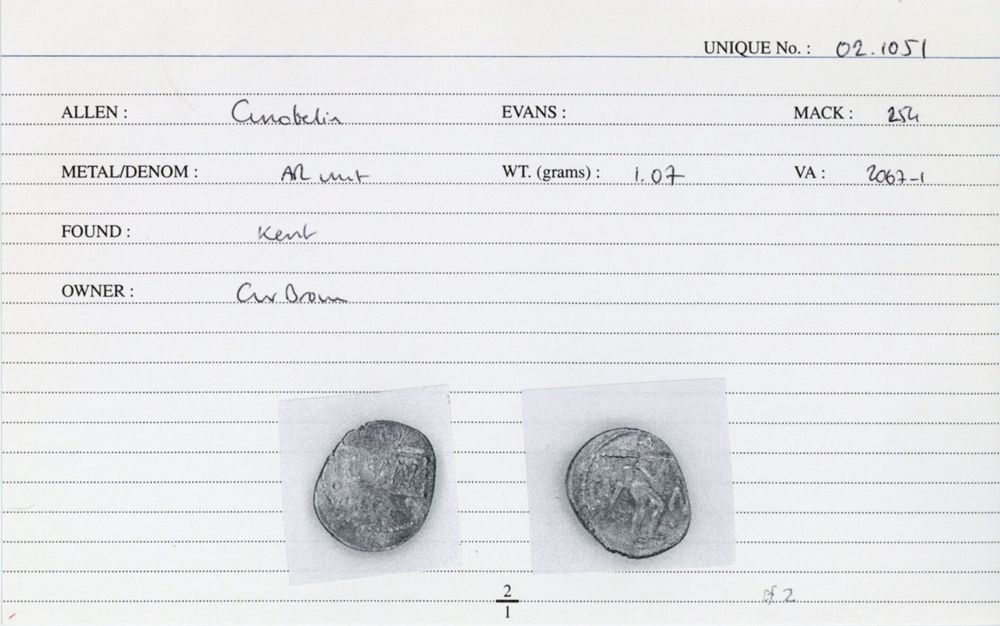 UNIQUE No. : 02.1051
ALLEN : Cunobelin EVANS : MACK : 254
METAL/DENOM : AR unit WT. (grams) : 1.07 VA : 2067-1
FOUND : Kent
OWNER :
2
1
of 2